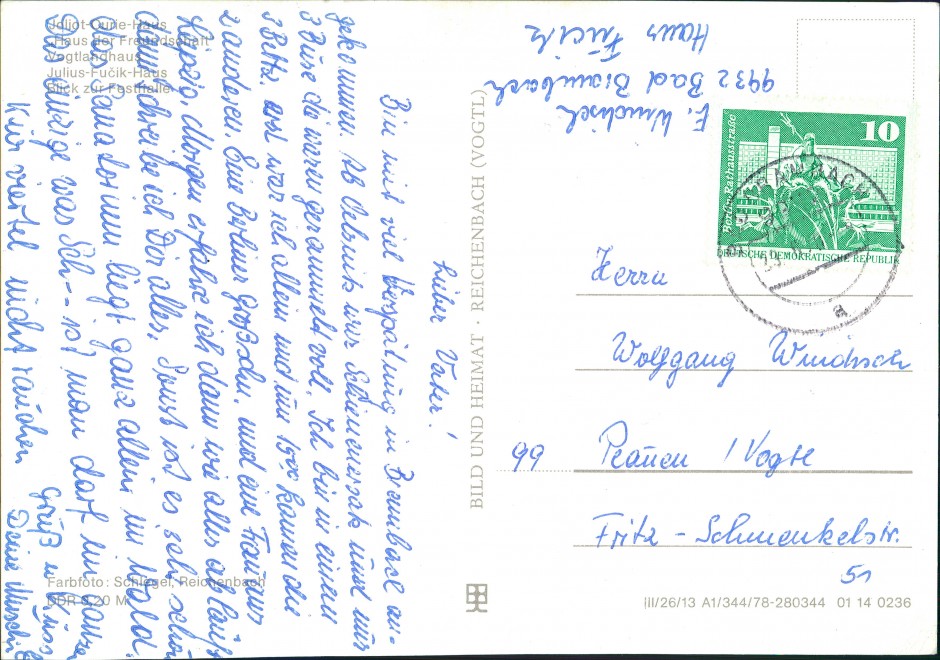 Joliot-Curie-Haus
„Haus der Freundschaft"
Vogtlandhaus
Julius-Fučik-Haus
Blick zur Festhalle
Lieber Vater!
Bin mit viel Verspätung in Brambach an-
gekommen. Ab Oelsnitz war Schienersatz und nur
3 Busse die waren gerammelt voll. Ich bin in einem
3 Bettz. erst war ich allein und um 15⁰⁰ kamen die
2 anderen. Eine Berliner Großschn. und eine Frau aus
Leipzig. Morgen erfahre ich dann wie alles abläuft
dann schreibe ich Dir alles. Sonst ist es sehr schön
das Sanatorium liegt ganz allein im Wald.
Das einzige was Sch--- ist man darf im ganzen
Kur viertel nicht rauchen
Gruß u. Kuss
Deine
Farbfoto: Schlegel, Reichenbach
DDR 0,20 M
BILD UND HEIMAT · REICHENBACH (VOGTL)
9932 Bad Brambach
Haus Fucik
10
Berlin, Rathausstraße
DEUTSCHE DEMOKRATISCHE REPUBLIK
BRAMBACH
a
Herrn
Wolfgang Windisch
99 Plauen / Vogtl
Fritz-Schmenkelstr.
51
III/26/13 A1/344/78-280344 01 14 0236